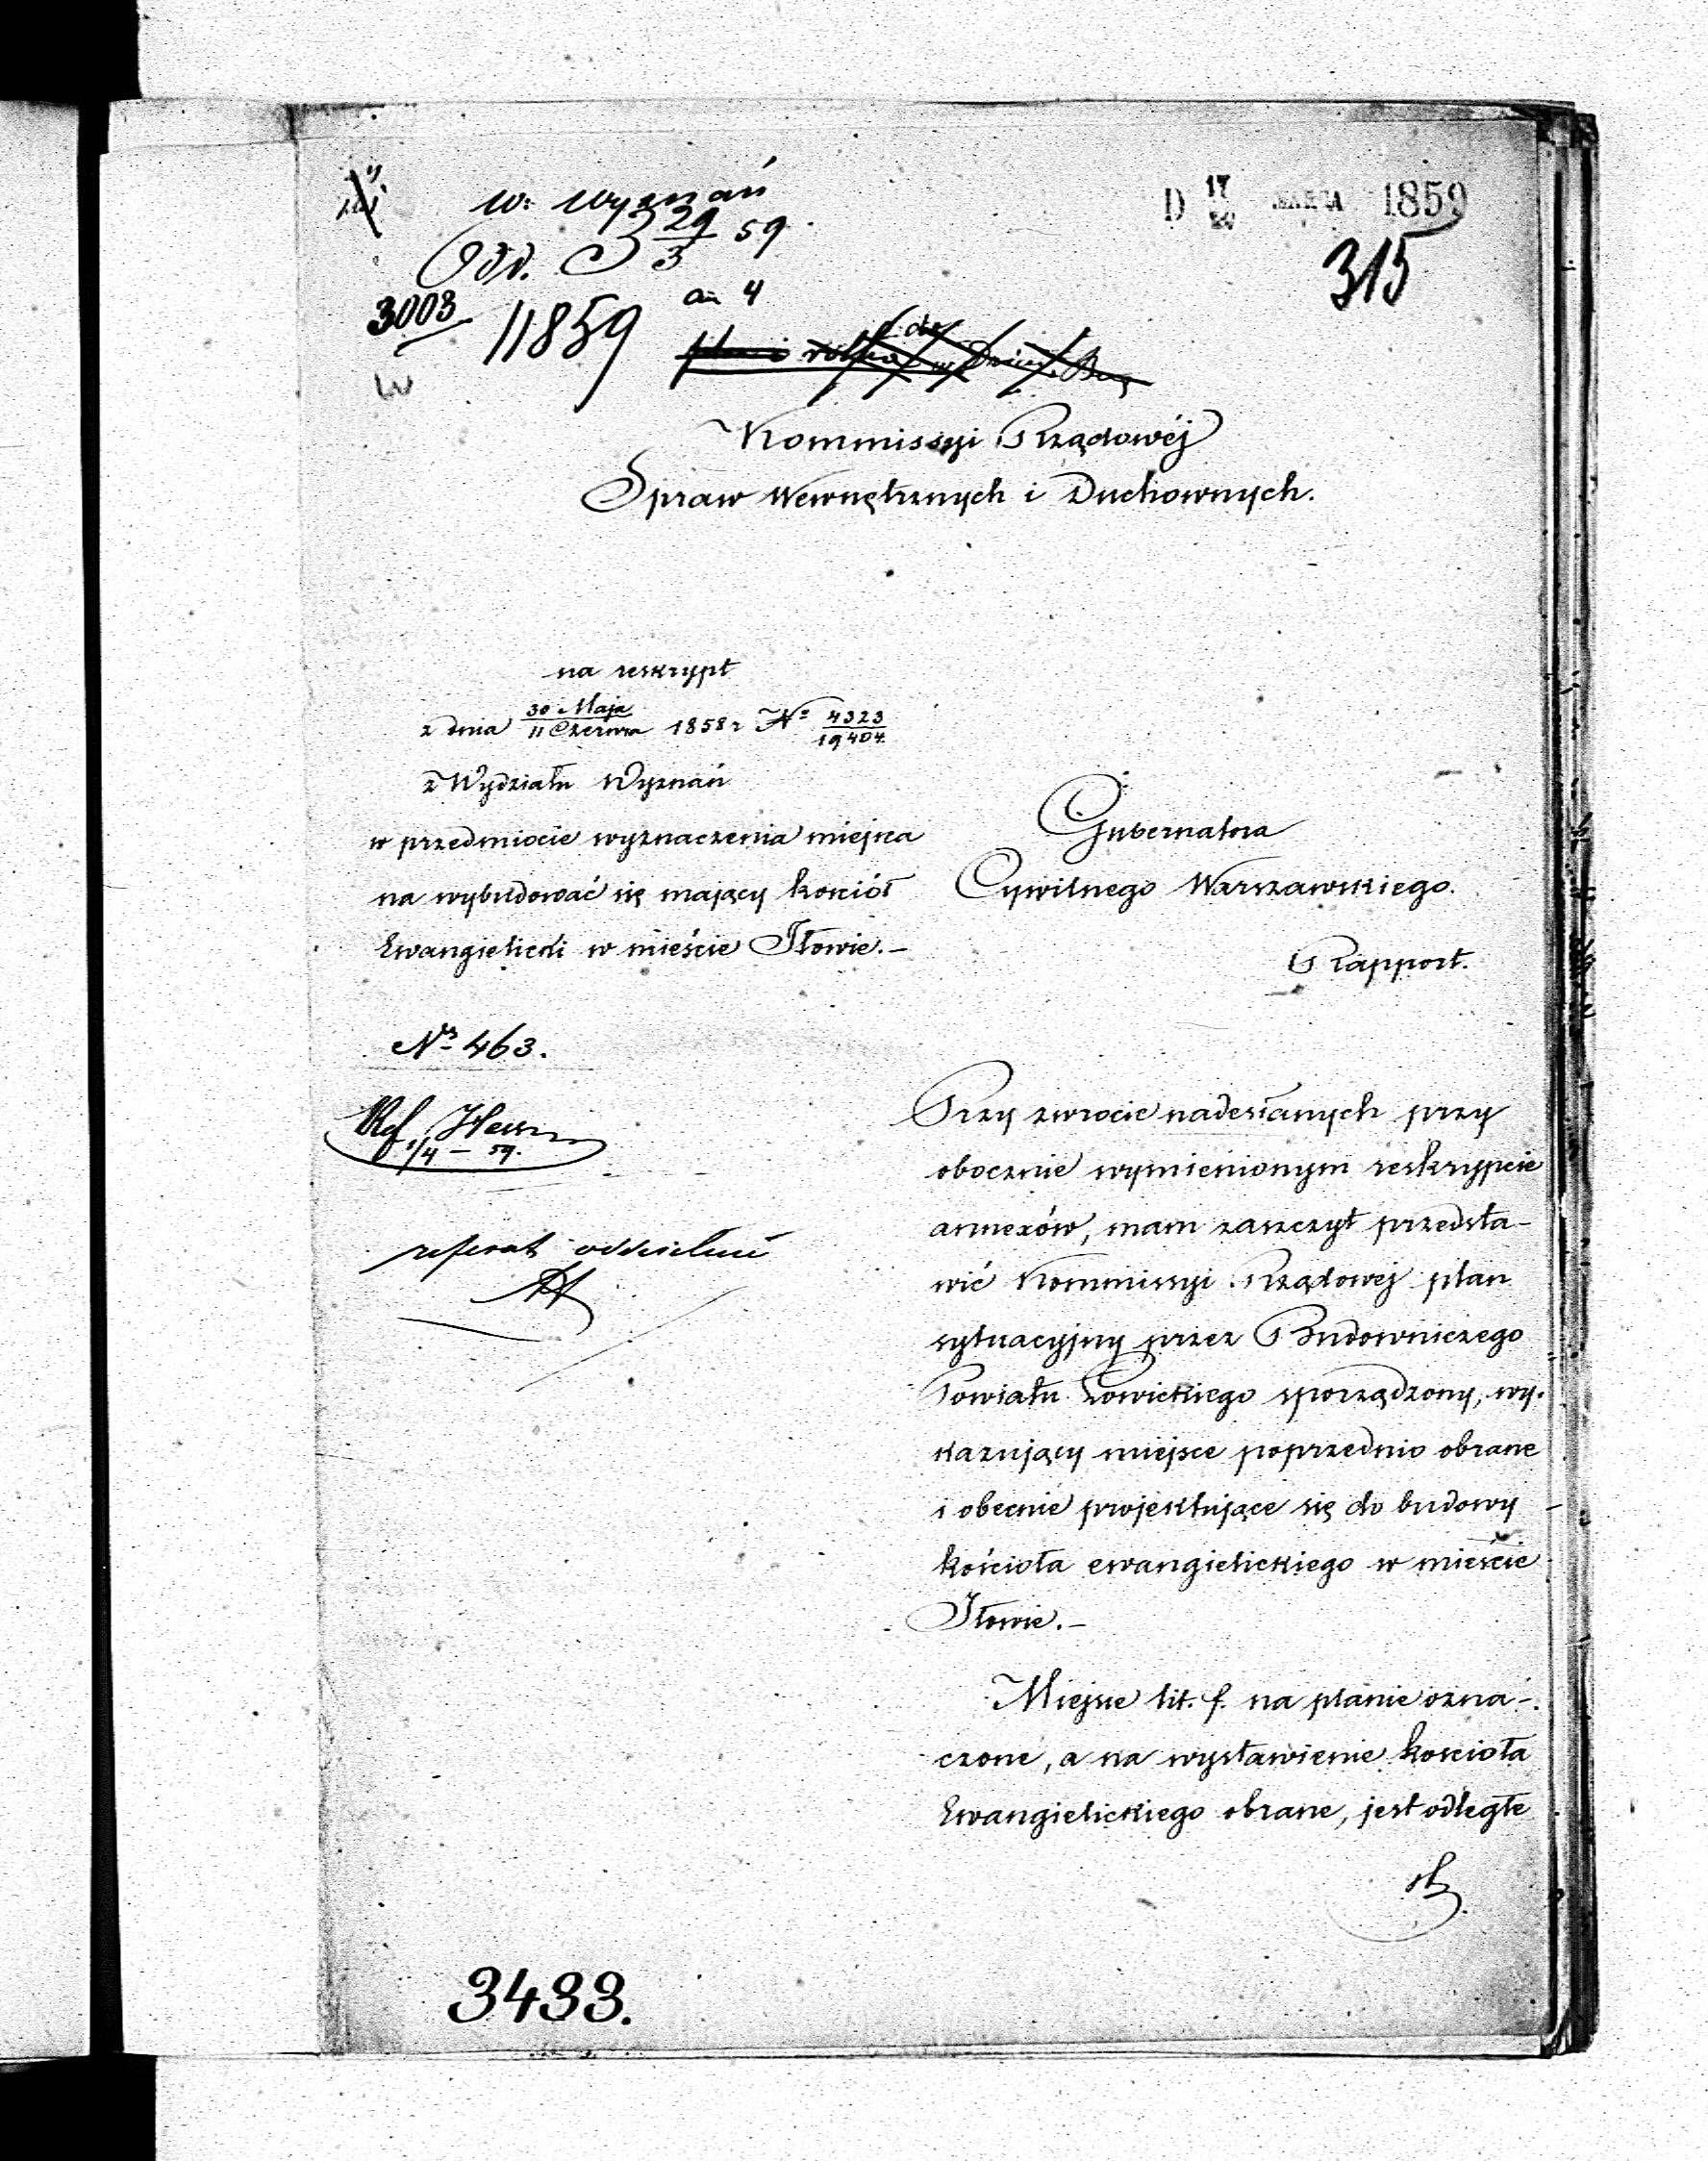 w. wyznań
Odd. 3 29/3 59
3003
11859
an 4
D 17 MARCA 1859
315
Kommissyi Rządowéj
Spraw Wewnętrznych i Duchownych.
na reskrypt
z dnia 30 Maja / 11 Czerwca 1858 r № 4323/19404.
z Wydziału Wyznań
w przedmiocie wyznaczenia miejsca
na wybudować się mający kościół
Ewangielicki w mieście Iłowie.-
Gubernatora
Cywilnego Warszawskiego.
Rapport.
№ 463.
Ref.
1/4 - 59.
referat oddzielnie
Przy zwrocie nadesłanych przy
obocznie wymienionym reskrypcie
annexów, mam zaszczyt przedsta-
wić Kommissyi Rządowej plan
sytuacyjny przez Budowniczego
Powiatu Łowickiego sporządzony, wy-
kazujący miejsce poprzednio obrane
i obecnie projektujące się do budowy
kościoła ewangielickiego w mieście
Iłowie.-
Miejsce lit. f. na planie ozna-
czone, a na wystawienie kościoła
Ewangielickiego obrane, jest odległe
3433.